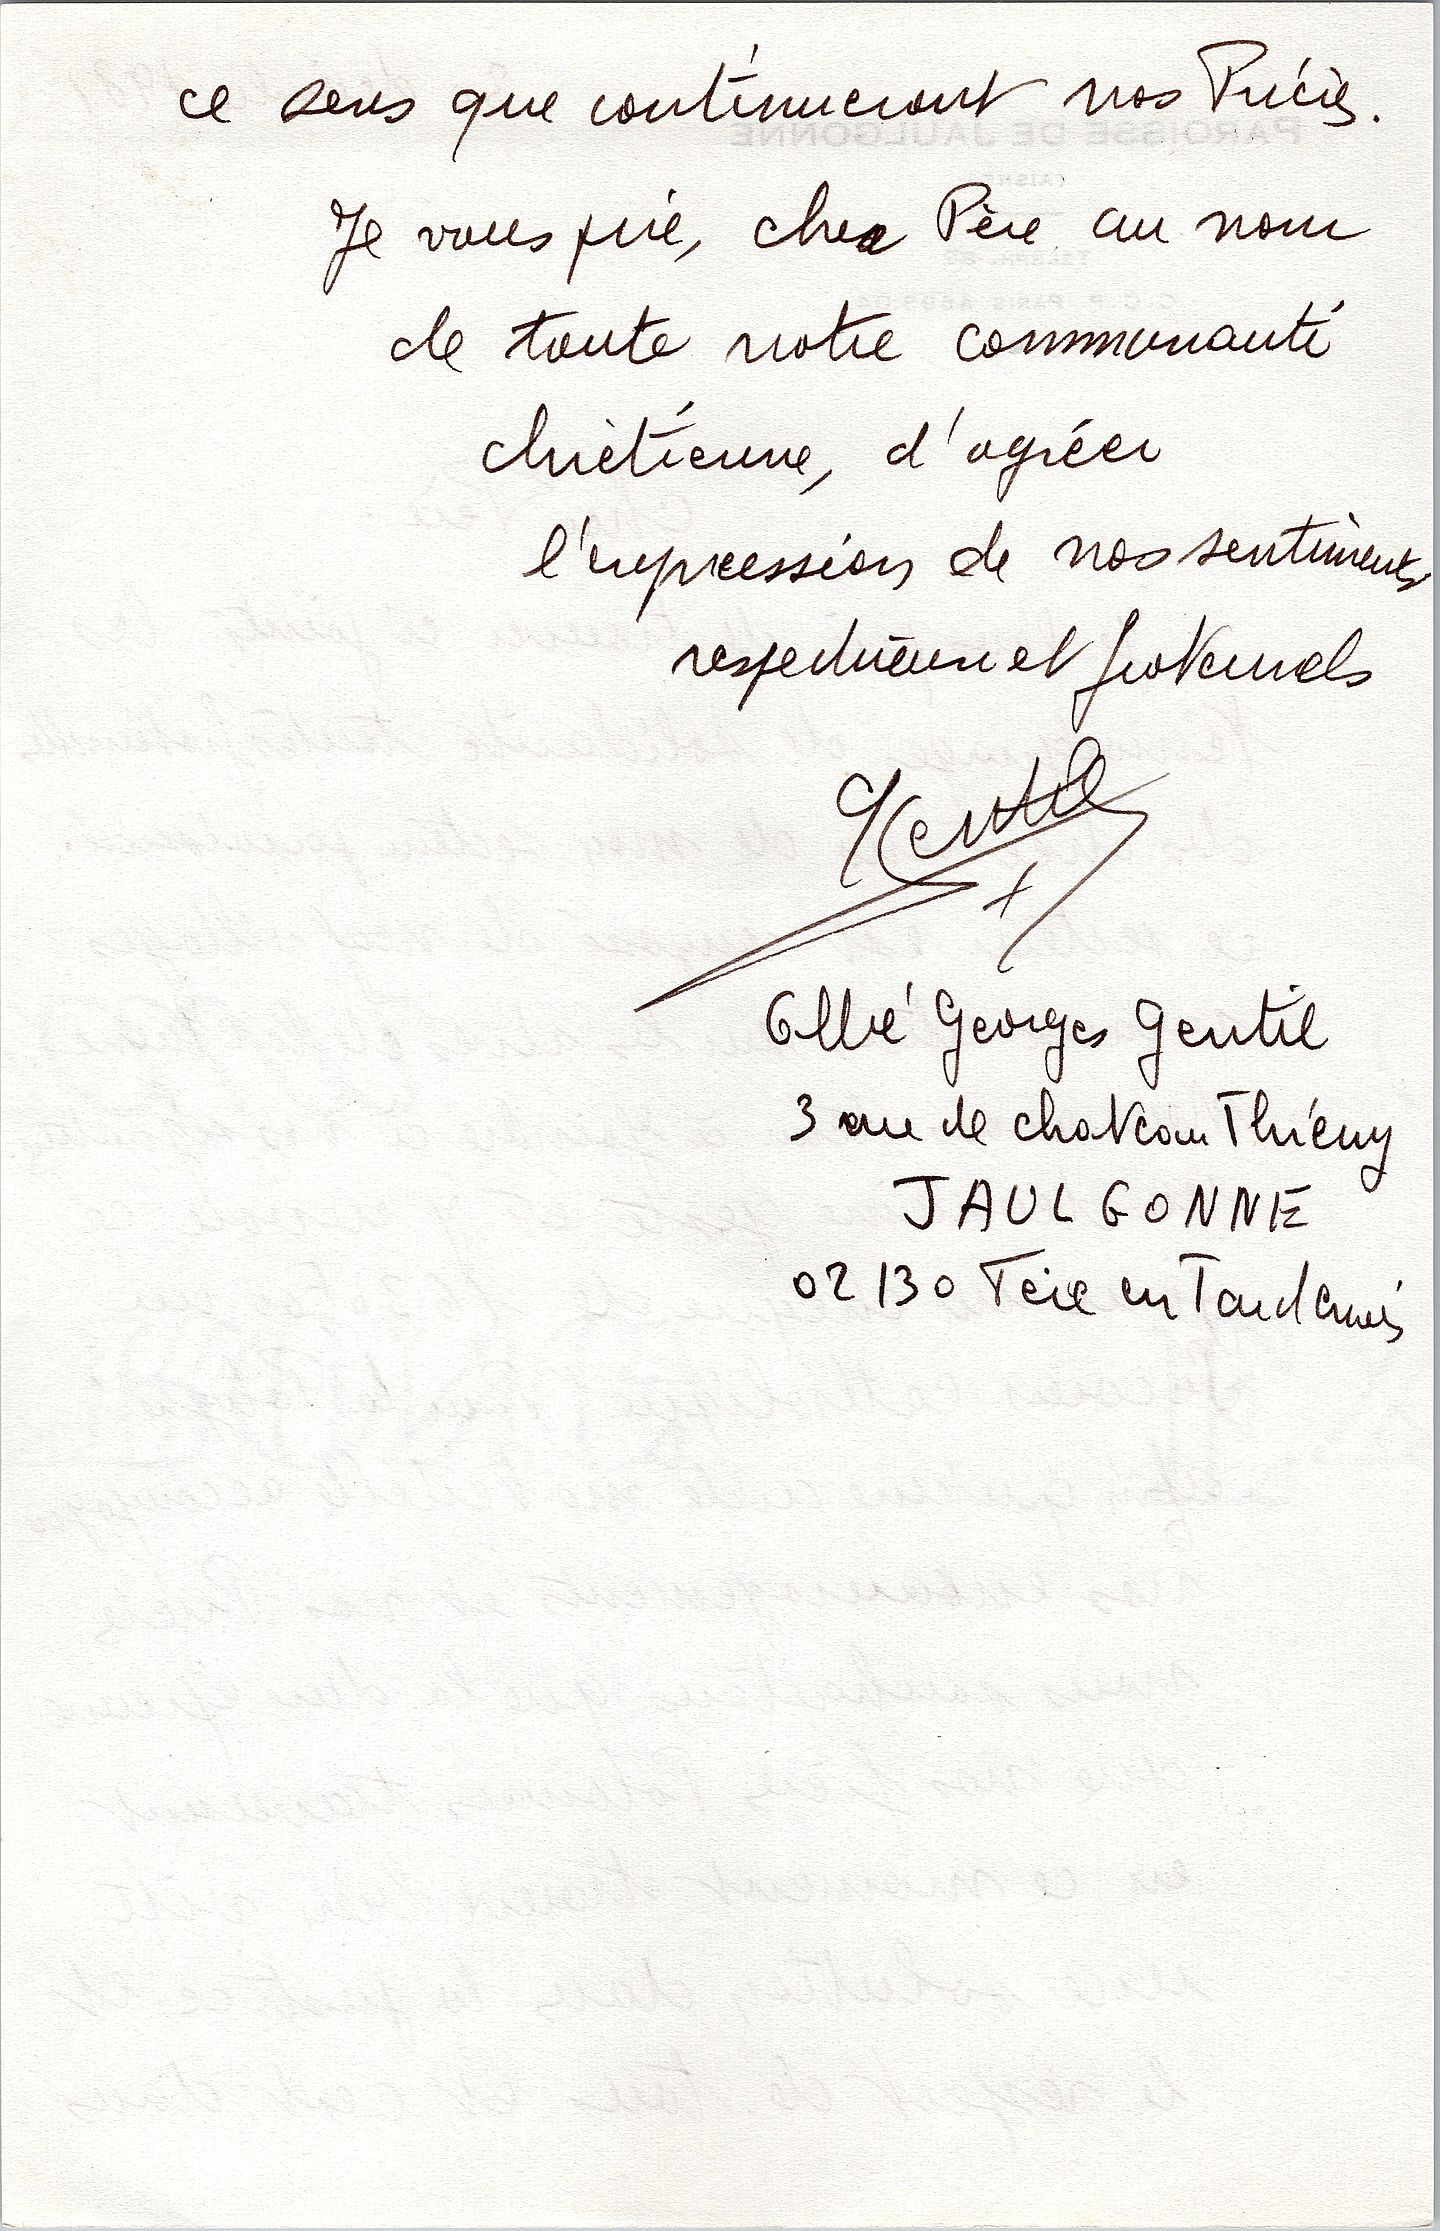 ce sens que continueront nos Prières.
Je vous prie, cher Père au nom
de toute notre communauté
chrétienne, d'agréer
l'expression de nos sentiments
respectueux et fraternels
Gentil
Abbé Georges Gentil
3 rue de chateau Thierry
JAULGONNE
02130 Fère en Tardenois